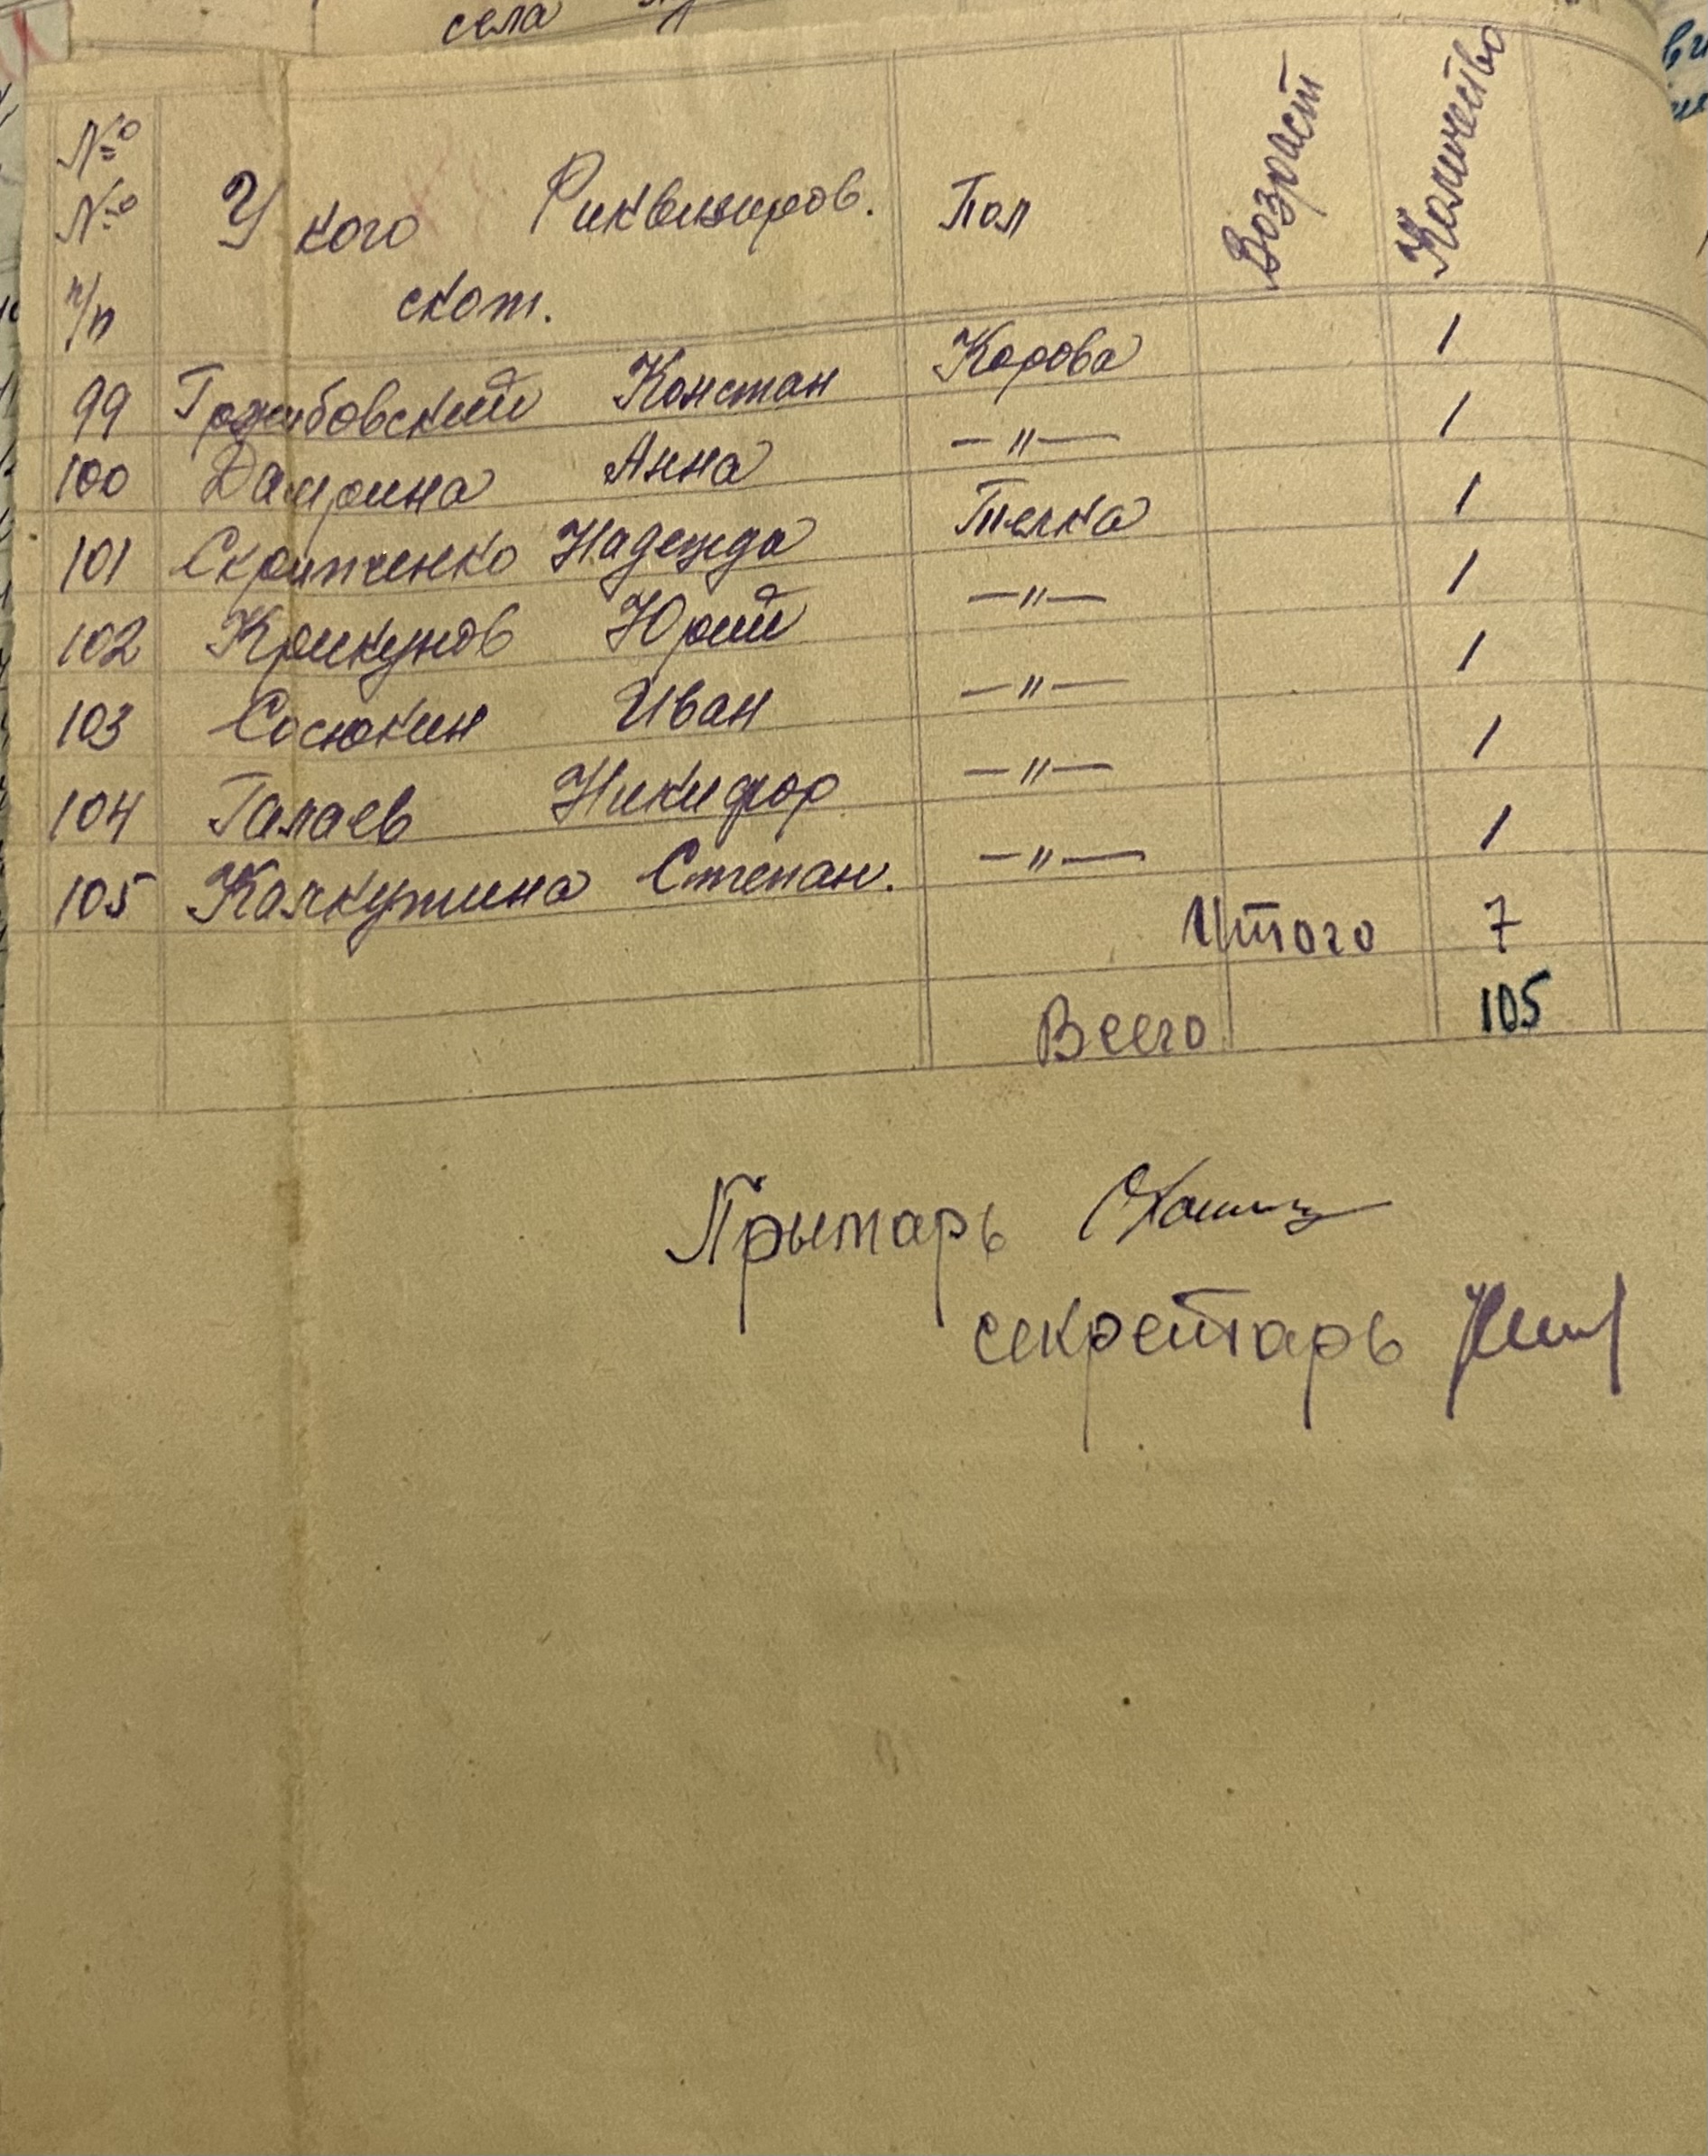 села
№ № п/п У кого Риквизиров. скот. Пол Возраст Количество
99 Гржибовский Констан Корова 1
100 Дамрина Анна —"— 1
101 Скрипченко Надежда Телка 1
102 Крикунов Юрий —"— 1
103 Сосюкин Иван —"— 1
104 Галаев Никифор —"— 1
105 Калкутина Степан. —"— 1
Итого 7
Всего 105
Прымарь
секретарь